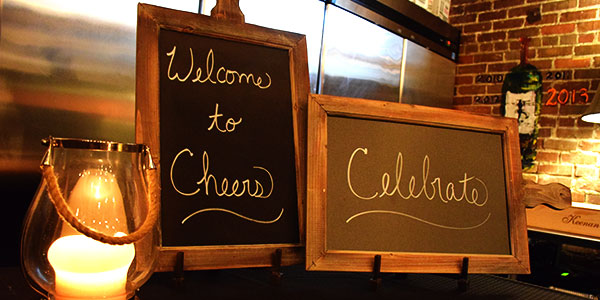 Welcome
to
Cheers
Celebrate
2013
Keenan